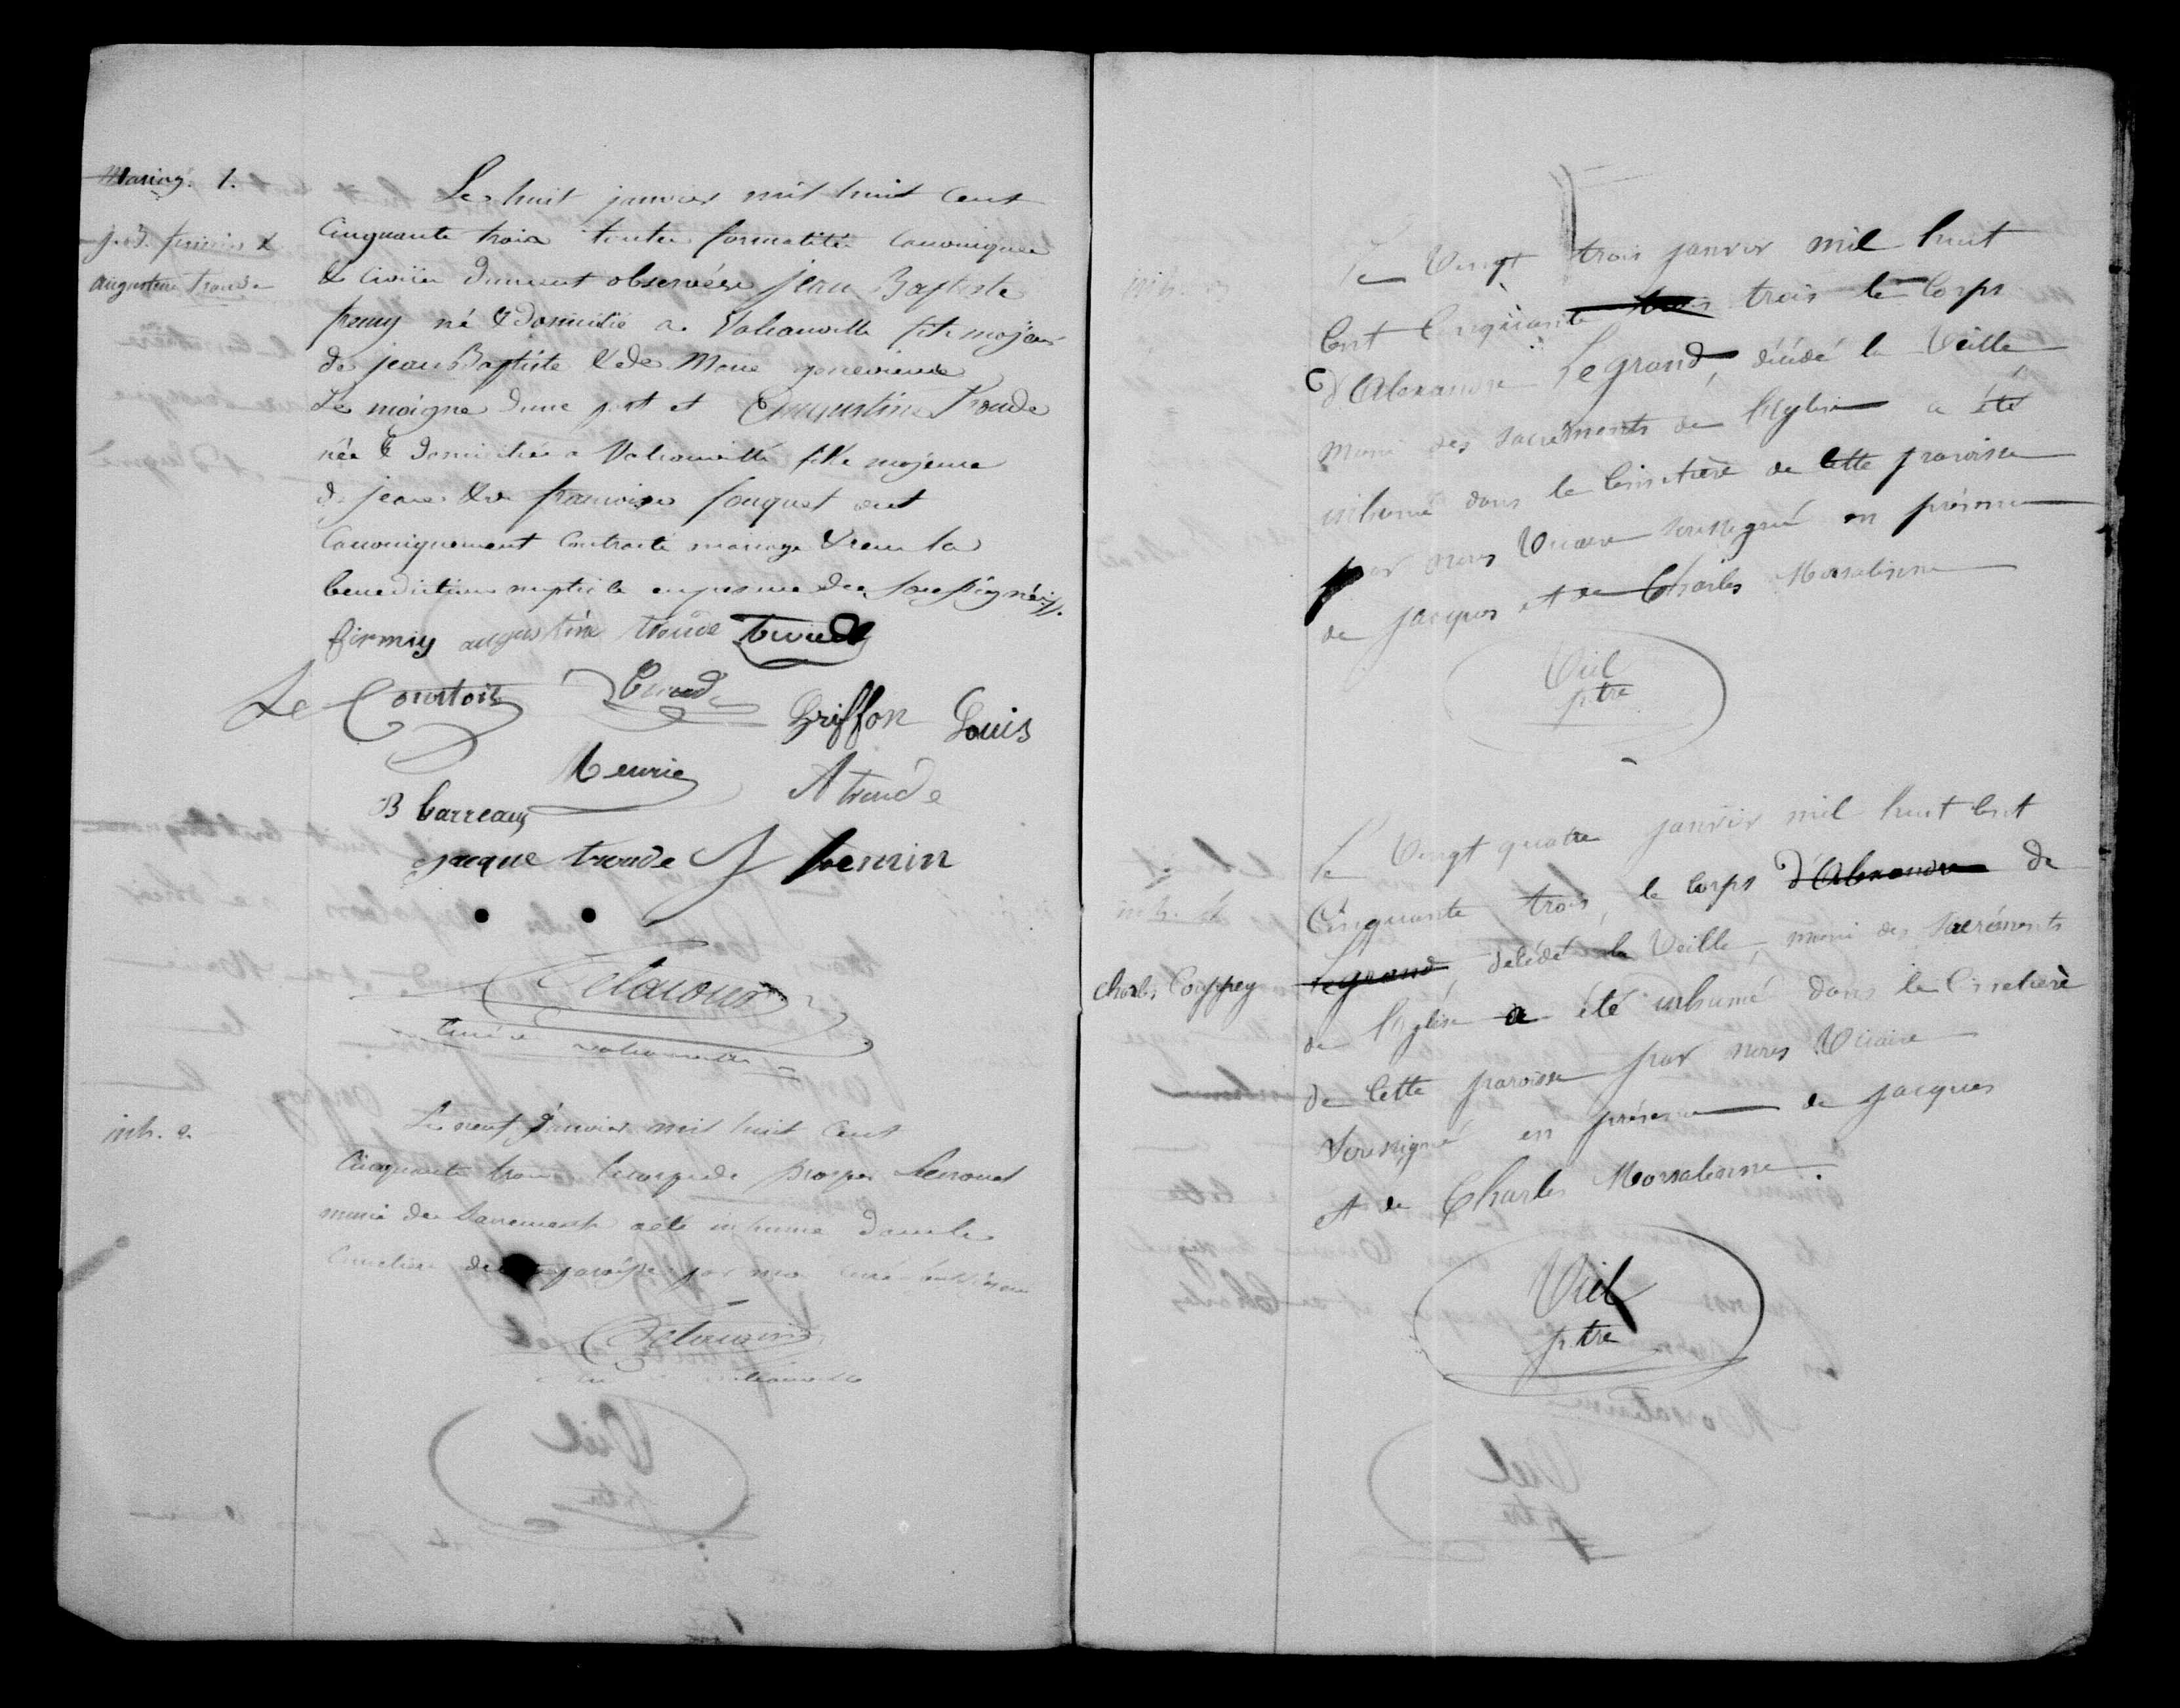 Mariag. 1.
Le huit janvier mil huit cent
j. B. firmin &
augustine Troude
cinquante trois toutes formalités canoniques
& civiles dument observées jean Baptiste
né & domicilié a fils majeur
de jean Baptiste & de Marie genevieve
Le moigne d'une part et Augustine Troude
née & domiciliée a fille majeure
de jean & de françoise fouquet ont
canoniquement contracté mariage & reçu la
benediction nuptiale en presence des soussignés
firmin augustine troude troude
Le Courtois Griffon Louis
Meurie A troude
B barreau
jacque troude J
Delacour
curé de
inh. 2.
Le neuf janvier mil huit cent
cinquante trois le corps de Prosper
muni des sacrements a été inhumé dans le
cimetière de paroisse par moi curé
Delacour
Le Vingt trois janvier mil huit
Cent Cinquante trois trois le Corps
d'Alexandre Legrand, décédé la Veille
muni des sacrements de l'église a été
inhumé dans le Cimetière de Cette paroisse
par nous Vicaire soussigné en présence
de jacques et de Charles Morsalinne
Viel
ptre
inh. 4
Charles Couppey
Le Vingt quatre janvier mil huit Cent
Cinquante trois, le corps d'Alexandre de
Legrand, décédé la Veille, muni des sacréments
de l'église a été inhumé dans le Cimetière
de Cette paroisse par nous Vicaire
soussigné en présence de jacques
et de Charles Morsalinne.
Viel
ptre